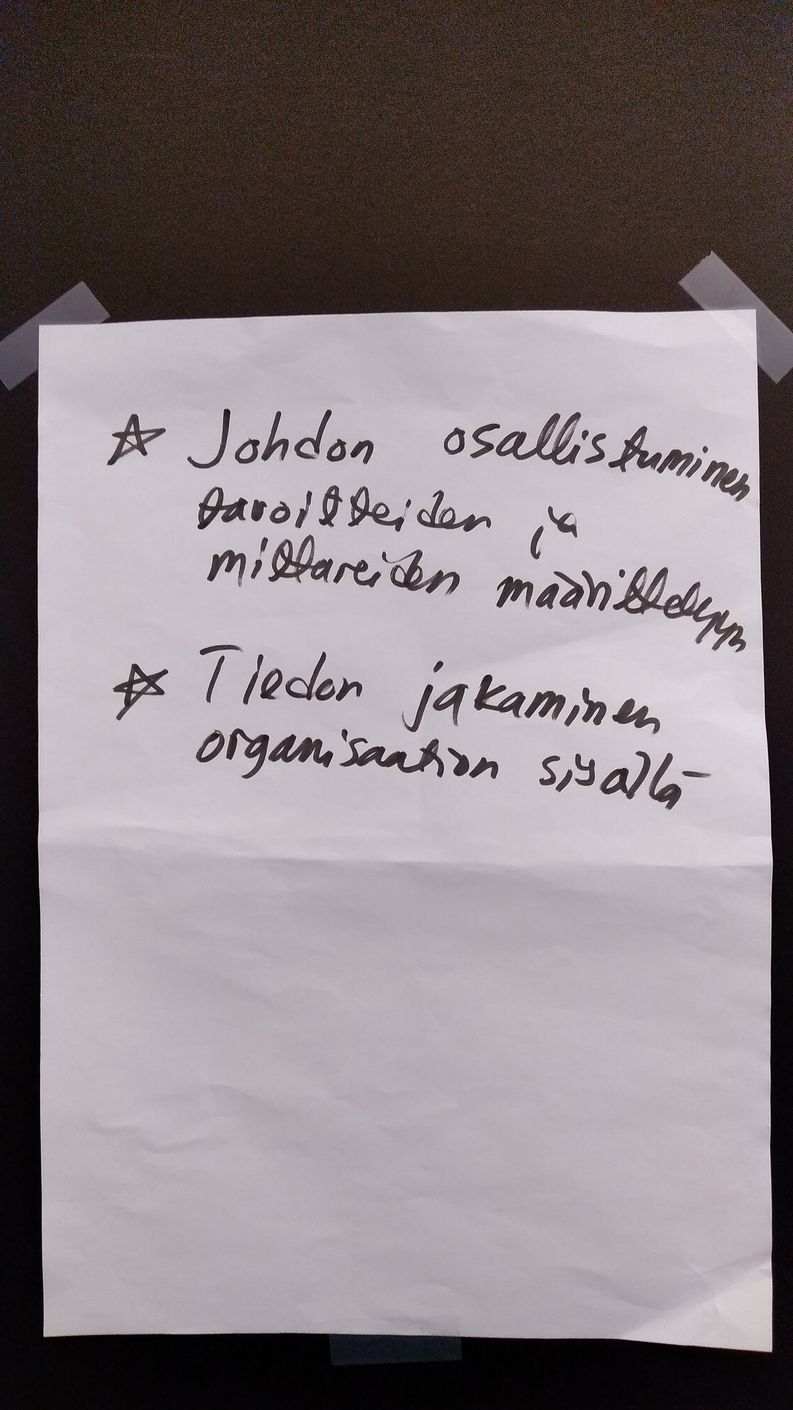 ☆ Johdon osallistuminen
tavoitteiden ja
mittareiden määrittelyyn
☆ Tiedon jakaminen
organisaation sisällä